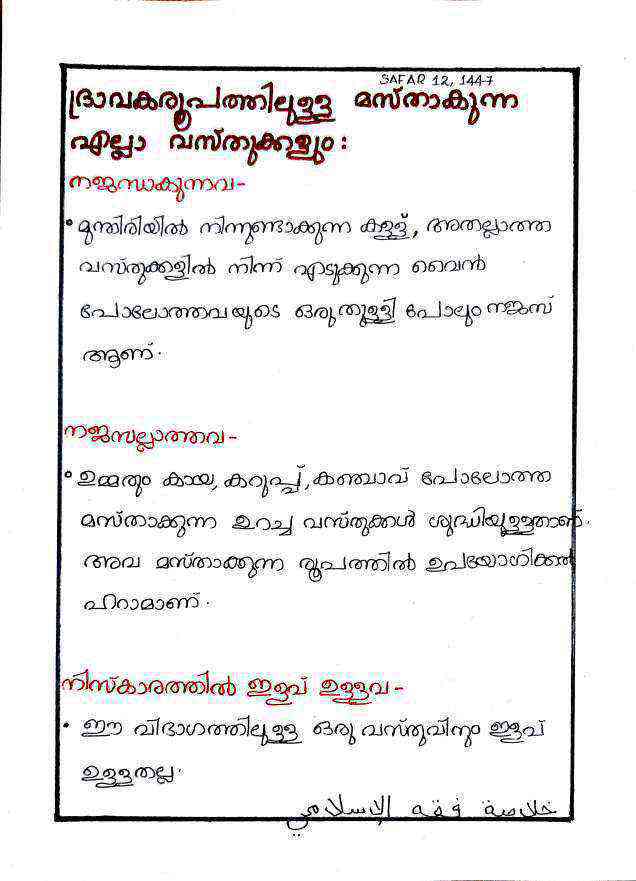 SAFAR 12, 1447
ദ്രാവകരൂപത്തിലുള്ള മസ്താകുന്ന
എല്ലാ വസ്തുക്കളും:
നജസാകുന്നവ-
• മുന്തിരിയിൽ നിന്നുണ്ടാക്കുന്ന കള്ള്, അതല്ലാത്ത
വസ്തുക്കളിൽ നിന്ന് എടുക്കുന്ന വൈൻ
പോലോത്തവയുടെ ഒരുതുള്ളി പോലും നജസ്
ആണ്.
നജസല്ലാത്തവ-
• ഉമ്മത്തും കായ, കറുപ്പ്, കഞ്ചാവ് പോലോത്ത
മസ്താക്കുന്ന ഉറച്ച വസ്തുക്കൾ ശുദ്ധിയുള്ളതാണ്.
അവ മസ്താക്കുന്ന രൂപത്തിൽ ഉപയോഗിക്കൽ
ഹറാമാണ്.
നിസ്കാരത്തിൽ ഇളവ് ഉള്ളവ-
• ഈ വിഭാഗത്തിലുള്ള ഒരു വസ്തുവിനും ഇളവ്
ഉള്ളതല്ല.
خلاصة فقه الإسلامي